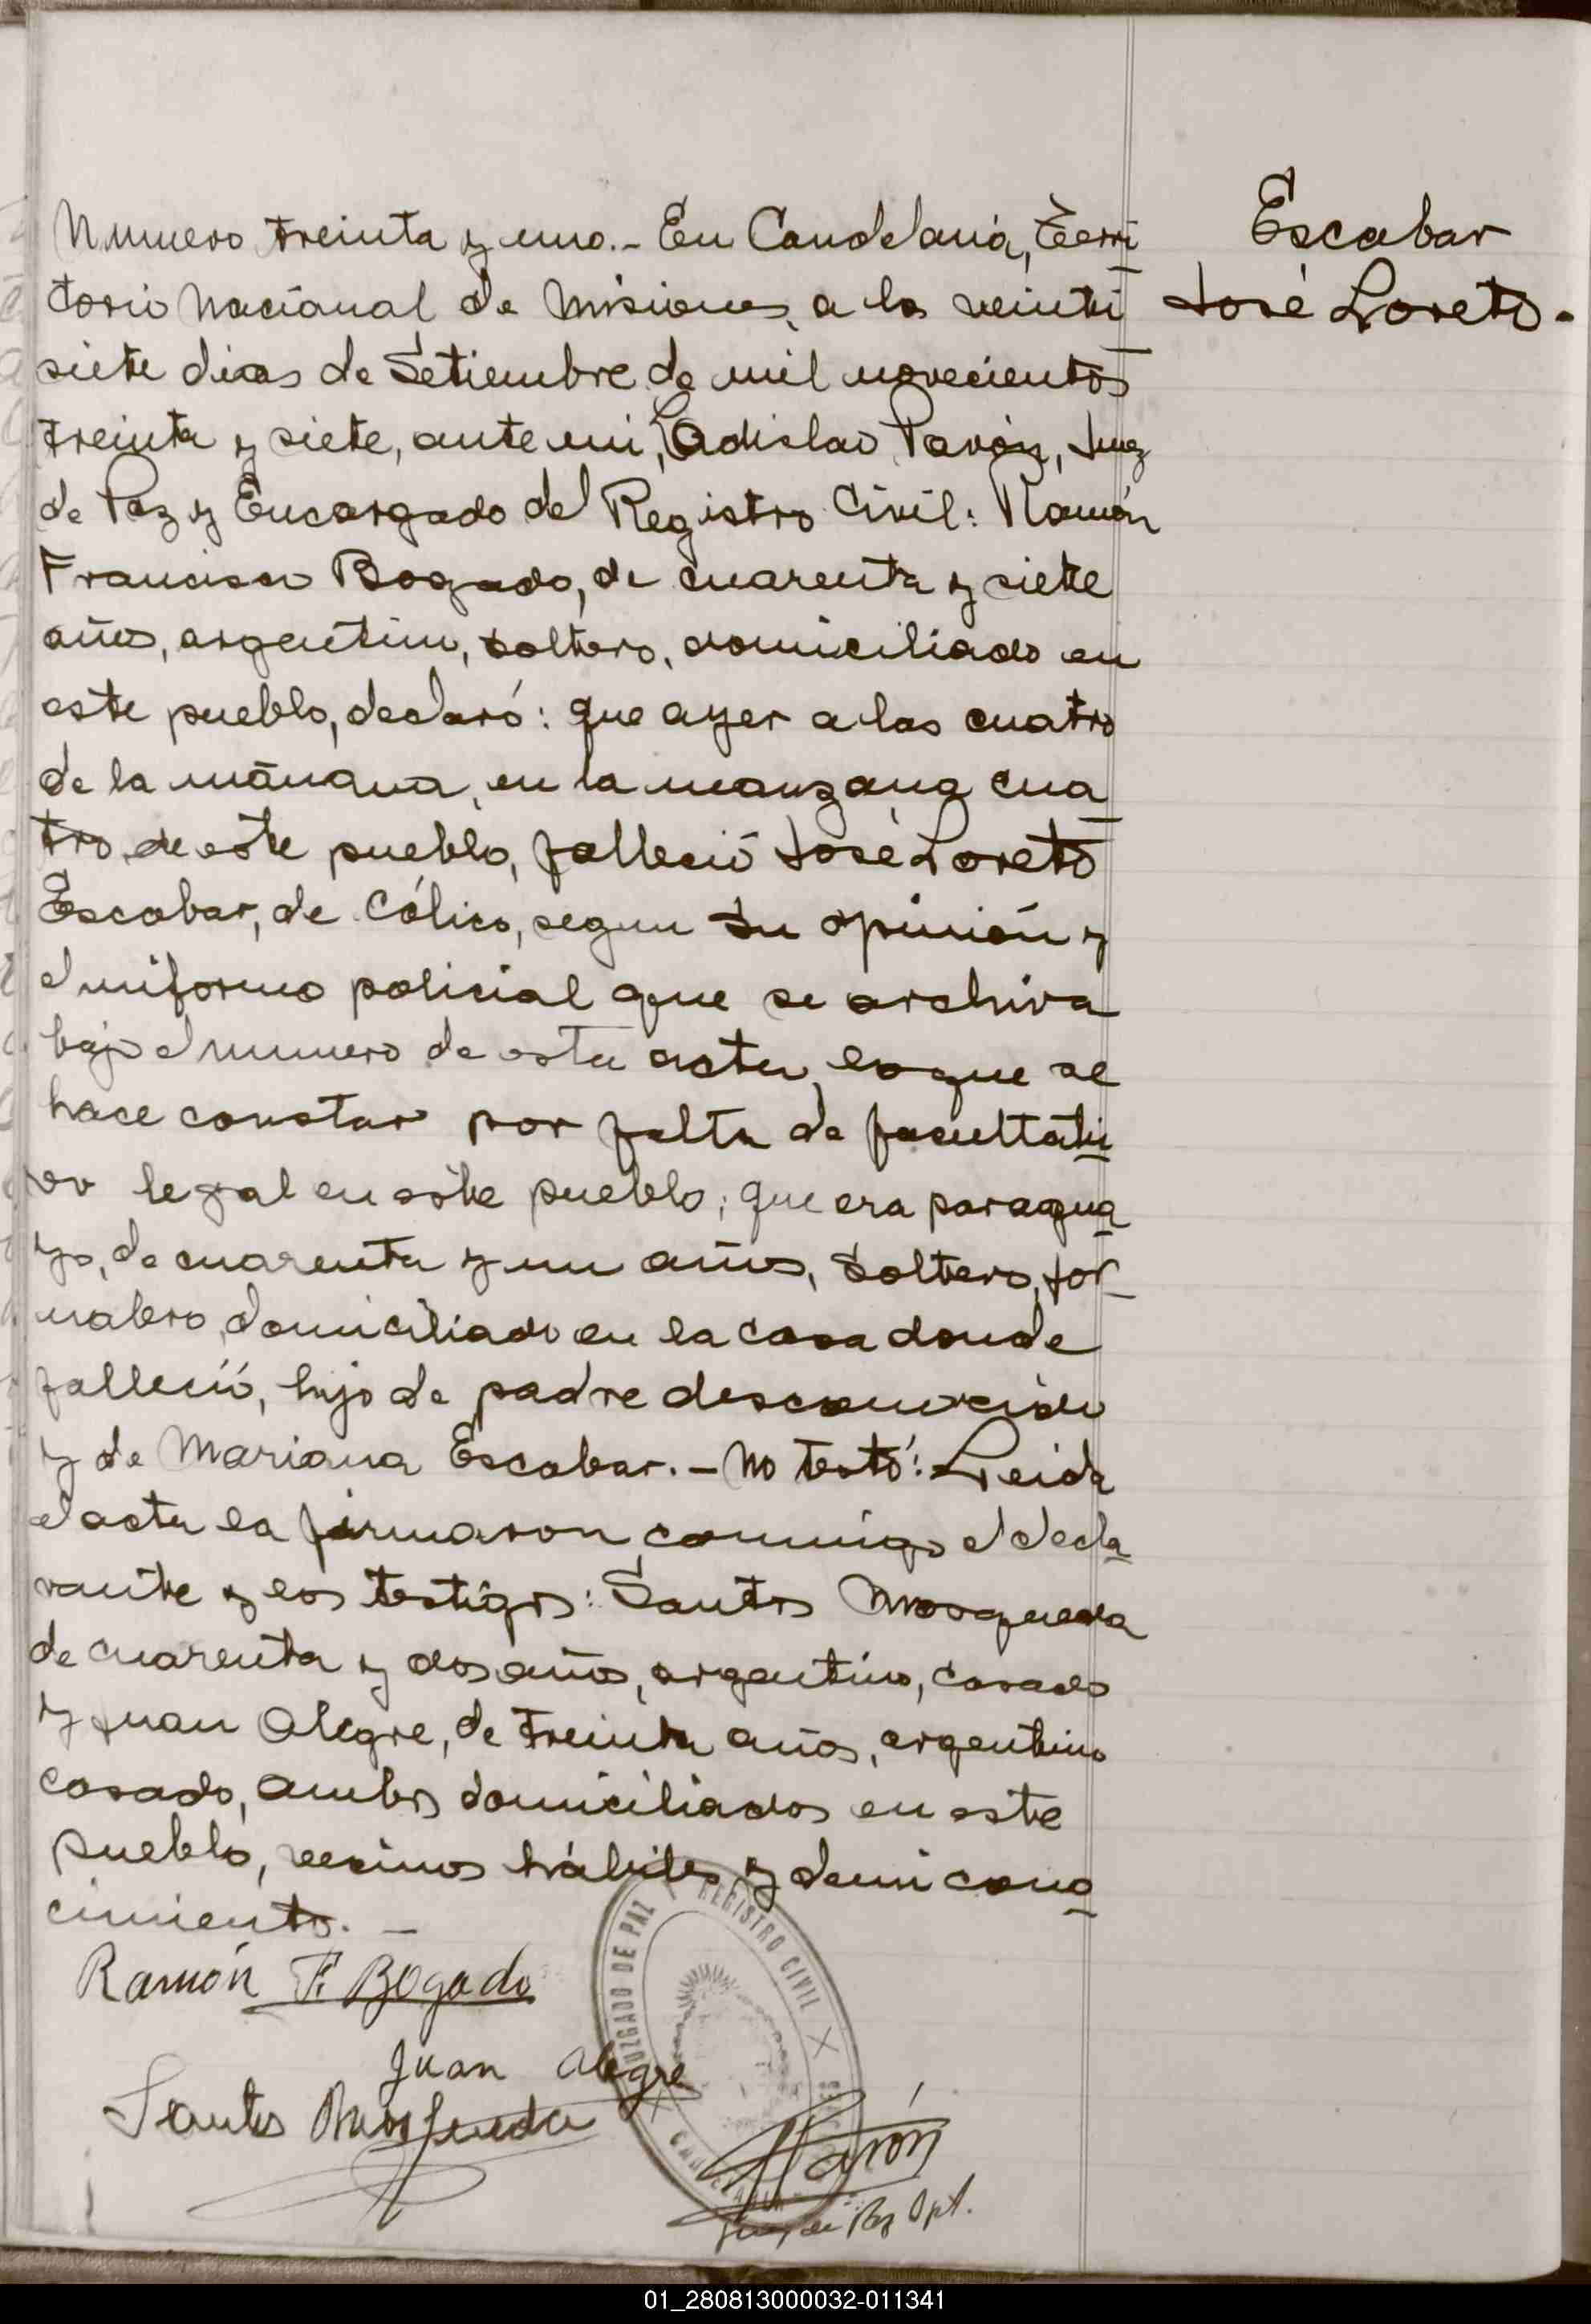 Escobar
José Loreto.-
Numero treinta y uno.- En Candelaria, Terri
torio Nacional de Misiones, a los veinti
siete dias de Setiembre de mil novecientos
treinta y siete, ante mi, Ladislao Pavón, Juez
de Paz y Encargado del Registro Civil: Ramón
Francisco Bogado, de cuarenta y siete
años, argentino, soltero, domiciliado en
este pueblo, declaró: que ayer a las cuatro
de la mañana, en la manzana cua
tro de este pueblo, falleció José Loreto
Escobar, de Cólico, segun su opinión y
el informe policial que se archiva
bajo el numero de esta acta, lo que se
hace constar por falta de facultati
vo legal en este pueblo; que era paragua
yo, de cuarenta y un años, soltero, jor
nalero, domiciliado en la casa donde
falleció, hijo de padre desconocido
y de Mariana Escobar.- No testó: Leida
el acta la firmaron conmigo el decla
rante y los testigos: Santos Mosqueda
de cuarenta y dos años, argentino, casado
y Juan Alegre, de treinta años, argentino
casado, ambos domiciliados en este
pueblo, vecinos hábiles y de mi cono
cimiento. -
Ramón F. Bogado
Juan Alegre
Santos Mosqueda
JUZGADO DE PAZ Y REGISTRO CIVIL
CANDELARIA
LPavón
Juez de Paz Spt.
01_280813000032-011341